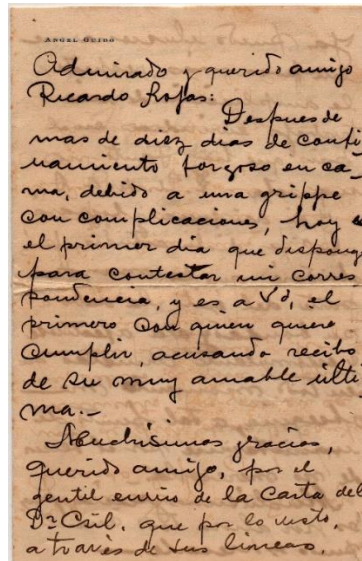 ANGEL GUIDO
Admirado y querido amigo
Ricardo Rojas:
Despues de
mas de diez dias de confi
namiento forzoso en ca-
ma, debido a una grippe
con complicaciones, hoy es
el primer dia que dispongo
para contestar mi corres
pondencia, y es a Vd, el
primero con quien quiero
cumplir, acusando recibo
de su muy amable ulti
ma.-
Muchisimas gracias,
querido amigo, por el
gentil envio de la Carta del
Dr. que por lo visto,
a través de sus lineas,